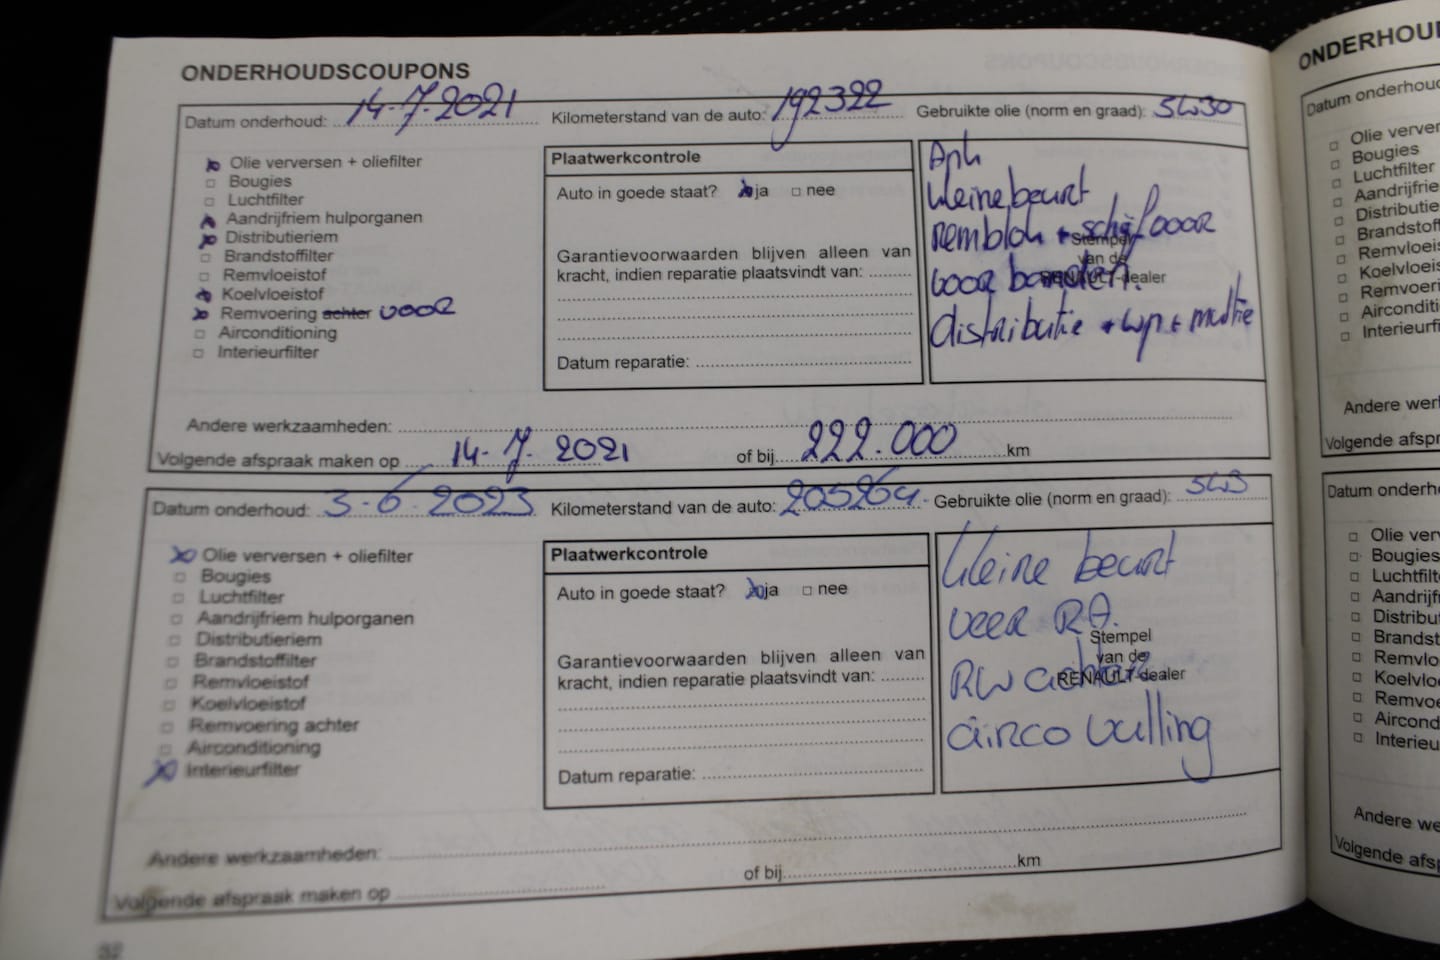 ONDERHOUDSCOUPONS
Datum onderhoud: 14-7-2021 Kilometerstand van de auto: 192322 Gebruikte olie (norm en graad): 5W30
Olie verversen + oliefilter
Bougies
Luchtfilter
Aandrijfriem hulporganen
Distributieriem
Brandstoffilter
Remvloeistof
Koelvloeistof
Remvoering achter voor
Airconditioning
Interieurfilter
Plaatwerkcontrole
Auto in goede staat? ja nee
Garantievoorwaarden blijven alleen van
kracht, indien reparatie plaatsvindt van:
Datum reparatie:
Apk
kleine beurt
remblok + schijf voor
voor banden.
distributie + wp + multie
Stempel
van de
RENAULT-dealer
Andere werkzaamheden:
Volgende afspraak maken op 14-7-2021 of bij 222.000 km
Datum onderhoud: 3-6-2023 Kilometerstand van de auto: 205264 Gebruikte olie (norm en graad): 5W3
Olie verversen + oliefilter
Bougies
Luchtfilter
Aandrijfriem hulporganen
Distributieriem
Brandstoffilter
Remvloeistof
Koelvloeistof
Remvoering achter
Airconditioning
Interieurfilter
Plaatwerkcontrole
Auto in goede staat? ja nee
Garantievoorwaarden blijven alleen van
kracht, indien reparatie plaatsvindt van:
Datum reparatie:
kleine beurt
veer RA.
RW achter
airco vulling
Stempel
van de
RENAULT-dealer
Andere werkzaamheden:
Volgende afspraak maken op of bij km
32
ONDERHOU
Datum onderhoud
Olie verver
Bougies
Luchtfilter
Aandrijfrie
Distributie
Brandstoff
Remvloeis
Koelvloeis
Remvoeri
Airconditi
Interieurfi
Andere werk
Volgende afspr
Datum onderh
Olie ver
Bougies
Luchtfilt
Aandrijf
Distribut
Brandst
Remvlo
Koelvlo
Remvoe
Aircond
Interieu
Andere we
Volgende afsp